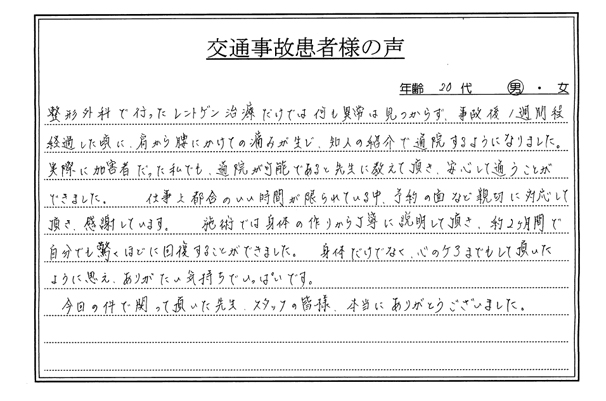 交通事故患者様の声
年齢 20 代 男・女
整形外科で行ったレントゲン治療だけでは何も異常は見つからず、事故後1週間程
経過した頃に、肩から腰にかけての痛みが生じ、知人の紹介で通院するようになりました。
実際に加害者だった私でも、通院が可能であると先生に教えて頂き、安心して通うことが
できました。 仕事上都合のいい時間が限られている中、予約の面など親切に対応して
頂き、感謝しています。 施術では身体の作りから丁寧に説明して頂き、約2ヶ月間で
自分でも驚くほどに回復することができました。 身体だけでなく、心のケアまでもして頂いた
ように思え、ありがたい気持ちでいっぱいです。
今回の件で関って頂いた先生、スタッフの皆様、本当にありがとうございました。